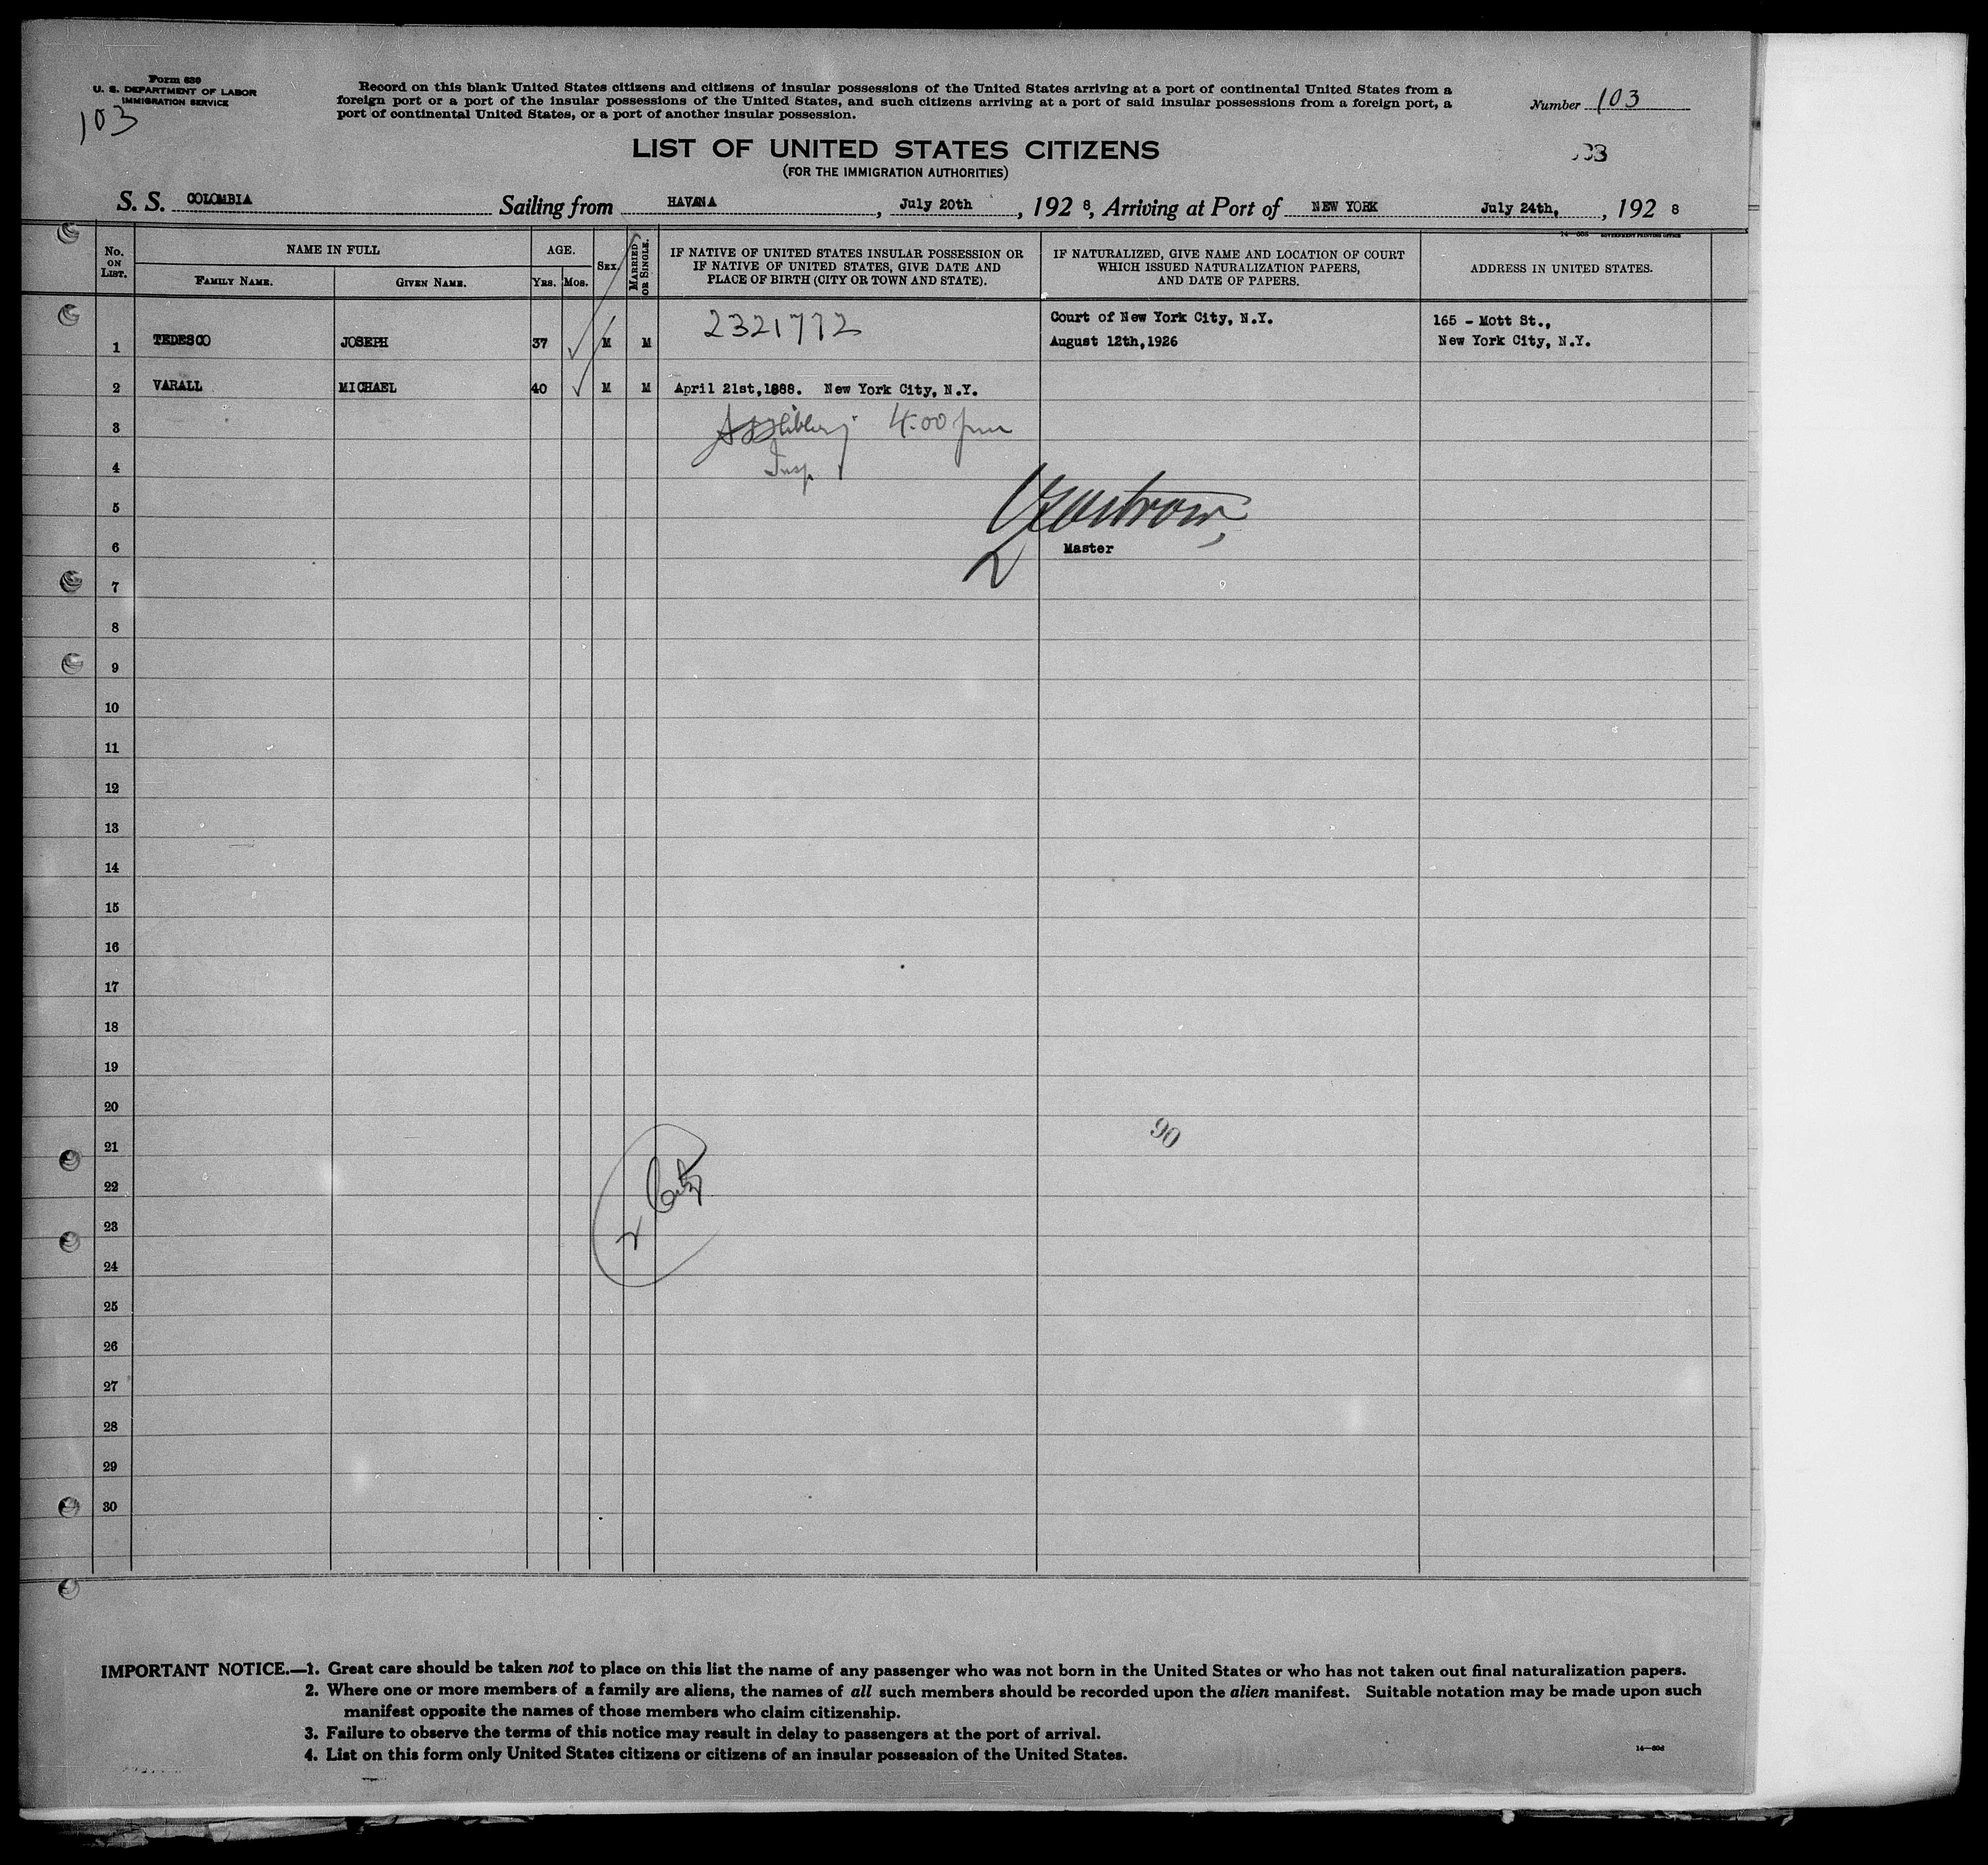 Form 630
U. S. DEPARTMENT OF LABOR
IMMIGRATION SERVICE
103
Record on this blank United States citizens and citizens of insular possessions of the United States arriving at a port of continental United States from a
foreign port or a port of the insular possessions of the United States, and such citizens arriving at a port of said insular possessions from a foreign port, a
port of continental United States, or a port of another insular possession.
Number 103
LIST OF UNITED STATES CITIZENS
(FOR THE IMMIGRATION AUTHORITIES)
S. S. COLOMBIA Sailing from HAVANA, July 20th, 192 8, Arriving at Port of NEW YORK July 24th, , 192 8
GOVERNMENT PRINTING OFFICE
No. ON LIST.
NAME IN FULL
FAMILY NAME.
GIVEN NAME.
AGE.
YRS.
MOS.
SEX.
MARRIED OR SINGLE.
IF NATIVE OF UNITED STATES INSULAR POSSESSION OR
IF NATIVE OF UNITED STATES, GIVE DATE AND
PLACE OF BIRTH (CITY OR TOWN AND STATE).
IF NATURALIZED, GIVE NAME AND LOCATION OF COURT
WHICH ISSUED NATURALIZATION PAPERS,
AND DATE OF PAPERS.
ADDRESS IN UNITED STATES.
1 TEDESCO JOSEPH 37 M M 2321772 Court of New York City, N.Y.
August 12th,1926
165 - Mott St.,
New York City, N.Y.
2 VARALL MICHAEL 40 M M April 21st,1888. New York City, N.Y.
3 4:00 pm
4 Insp
5
6 Master
7
8
9
10
11
12
13
14
15
16
17
18
19
20
21 90
22
23
24
25
26
27
28
29
30
IMPORTANT NOTICE.—1. Great care should be taken not to place on this list the name of any passenger who was not born in the United States or who has not taken out final naturalization papers.
2. Where one or more members of a family are aliens, the names of all such members should be recorded upon the alien manifest. Suitable notation may be made upon such
manifest opposite the names of those members who claim citizenship.
3. Failure to observe the terms of this notice may result in delay to passengers at the port of arrival.
4. List on this form only United States citizens or citizens of an insular possession of the United States.